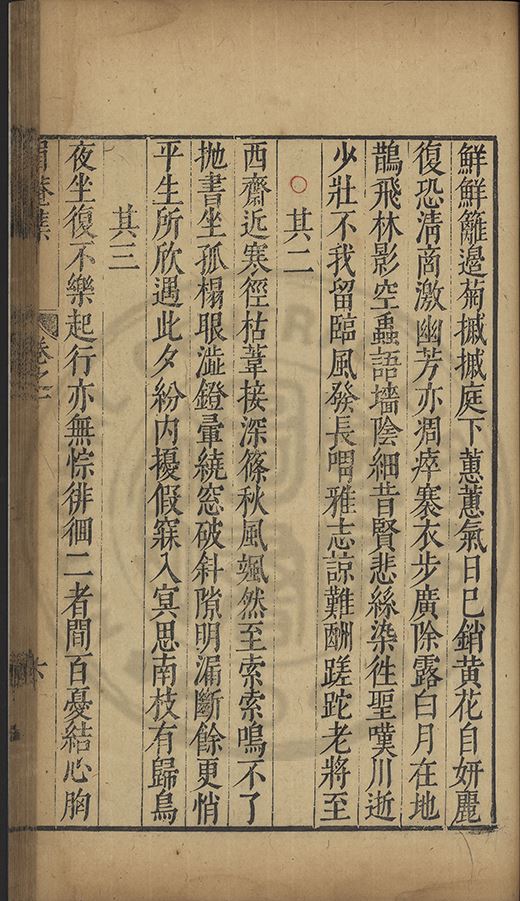 鮮鮮籬邉菊摵摵庭下蕙蕙氣日已銷黄花自妍麗
復恐清商激幽芳亦凋瘁褰衣步廣除露白月在地
鵲飛林影空蟲語墻陰細昔賢悲絲染徃聖嘆川逝
少壯不我留臨風發長喟雅志諒難酬蹉跎老將至
其二
西齋近寒徑枯葦接深篠秋風颯然至索索鳴不了
抛書坐孤榻眼澁鐙暈繞窓破斜隙明漏斷餘更悄
平生所欣遇此夕紛内擾假寐入冥思南枝有歸鳥
其三
夜坐復不樂起行亦無悰徘徊二者間百憂結心胸
菴集
卷之二
六